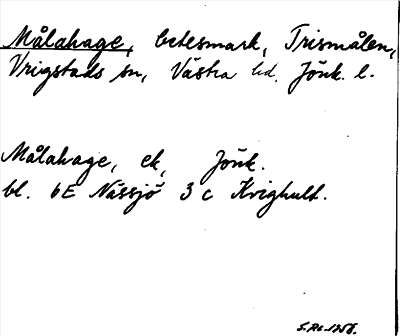 Målahage, betesmark, Trismålen,
Vrigstads sn, Västra hd. Jönk. l.
Målahage, ek, Jönk.
bl. 6E Nässjö 3 c Krighult.